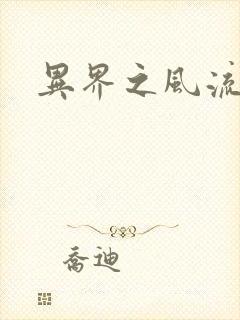 異界之風流
喬迪